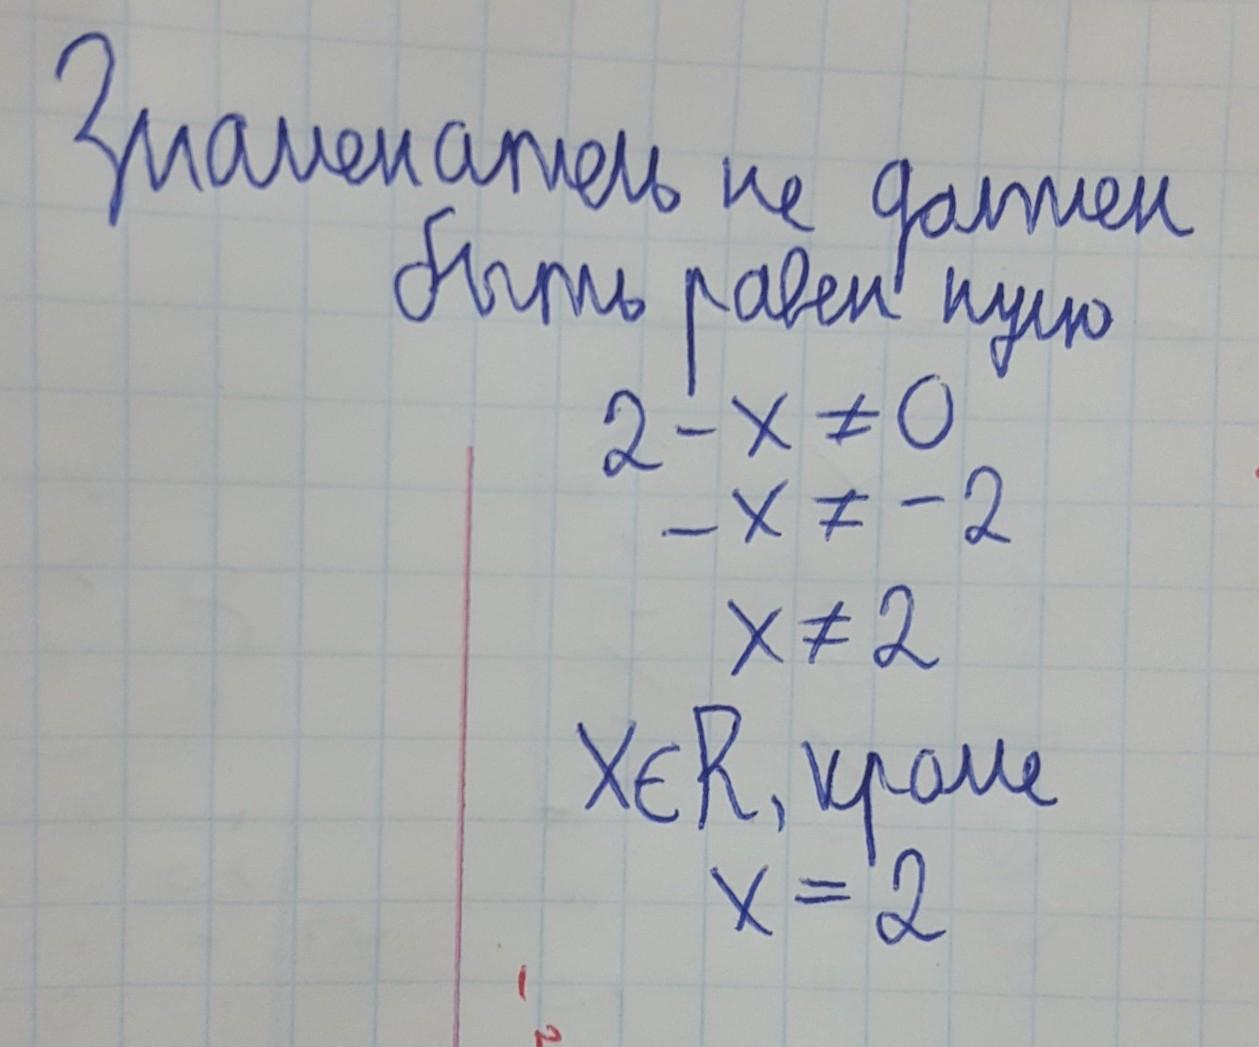 Знаменатель не должен
быть равен нулю
2 - x ≠ 0
- x ≠ - 2
x ≠ 2
X ∈ R, кроме
x = 2
2